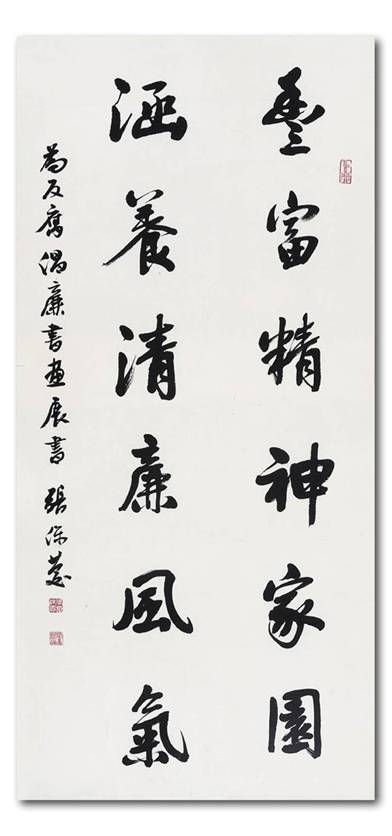 豐富精神家園
涵養清廉風氣
為反腐倡廉書畫展書 張